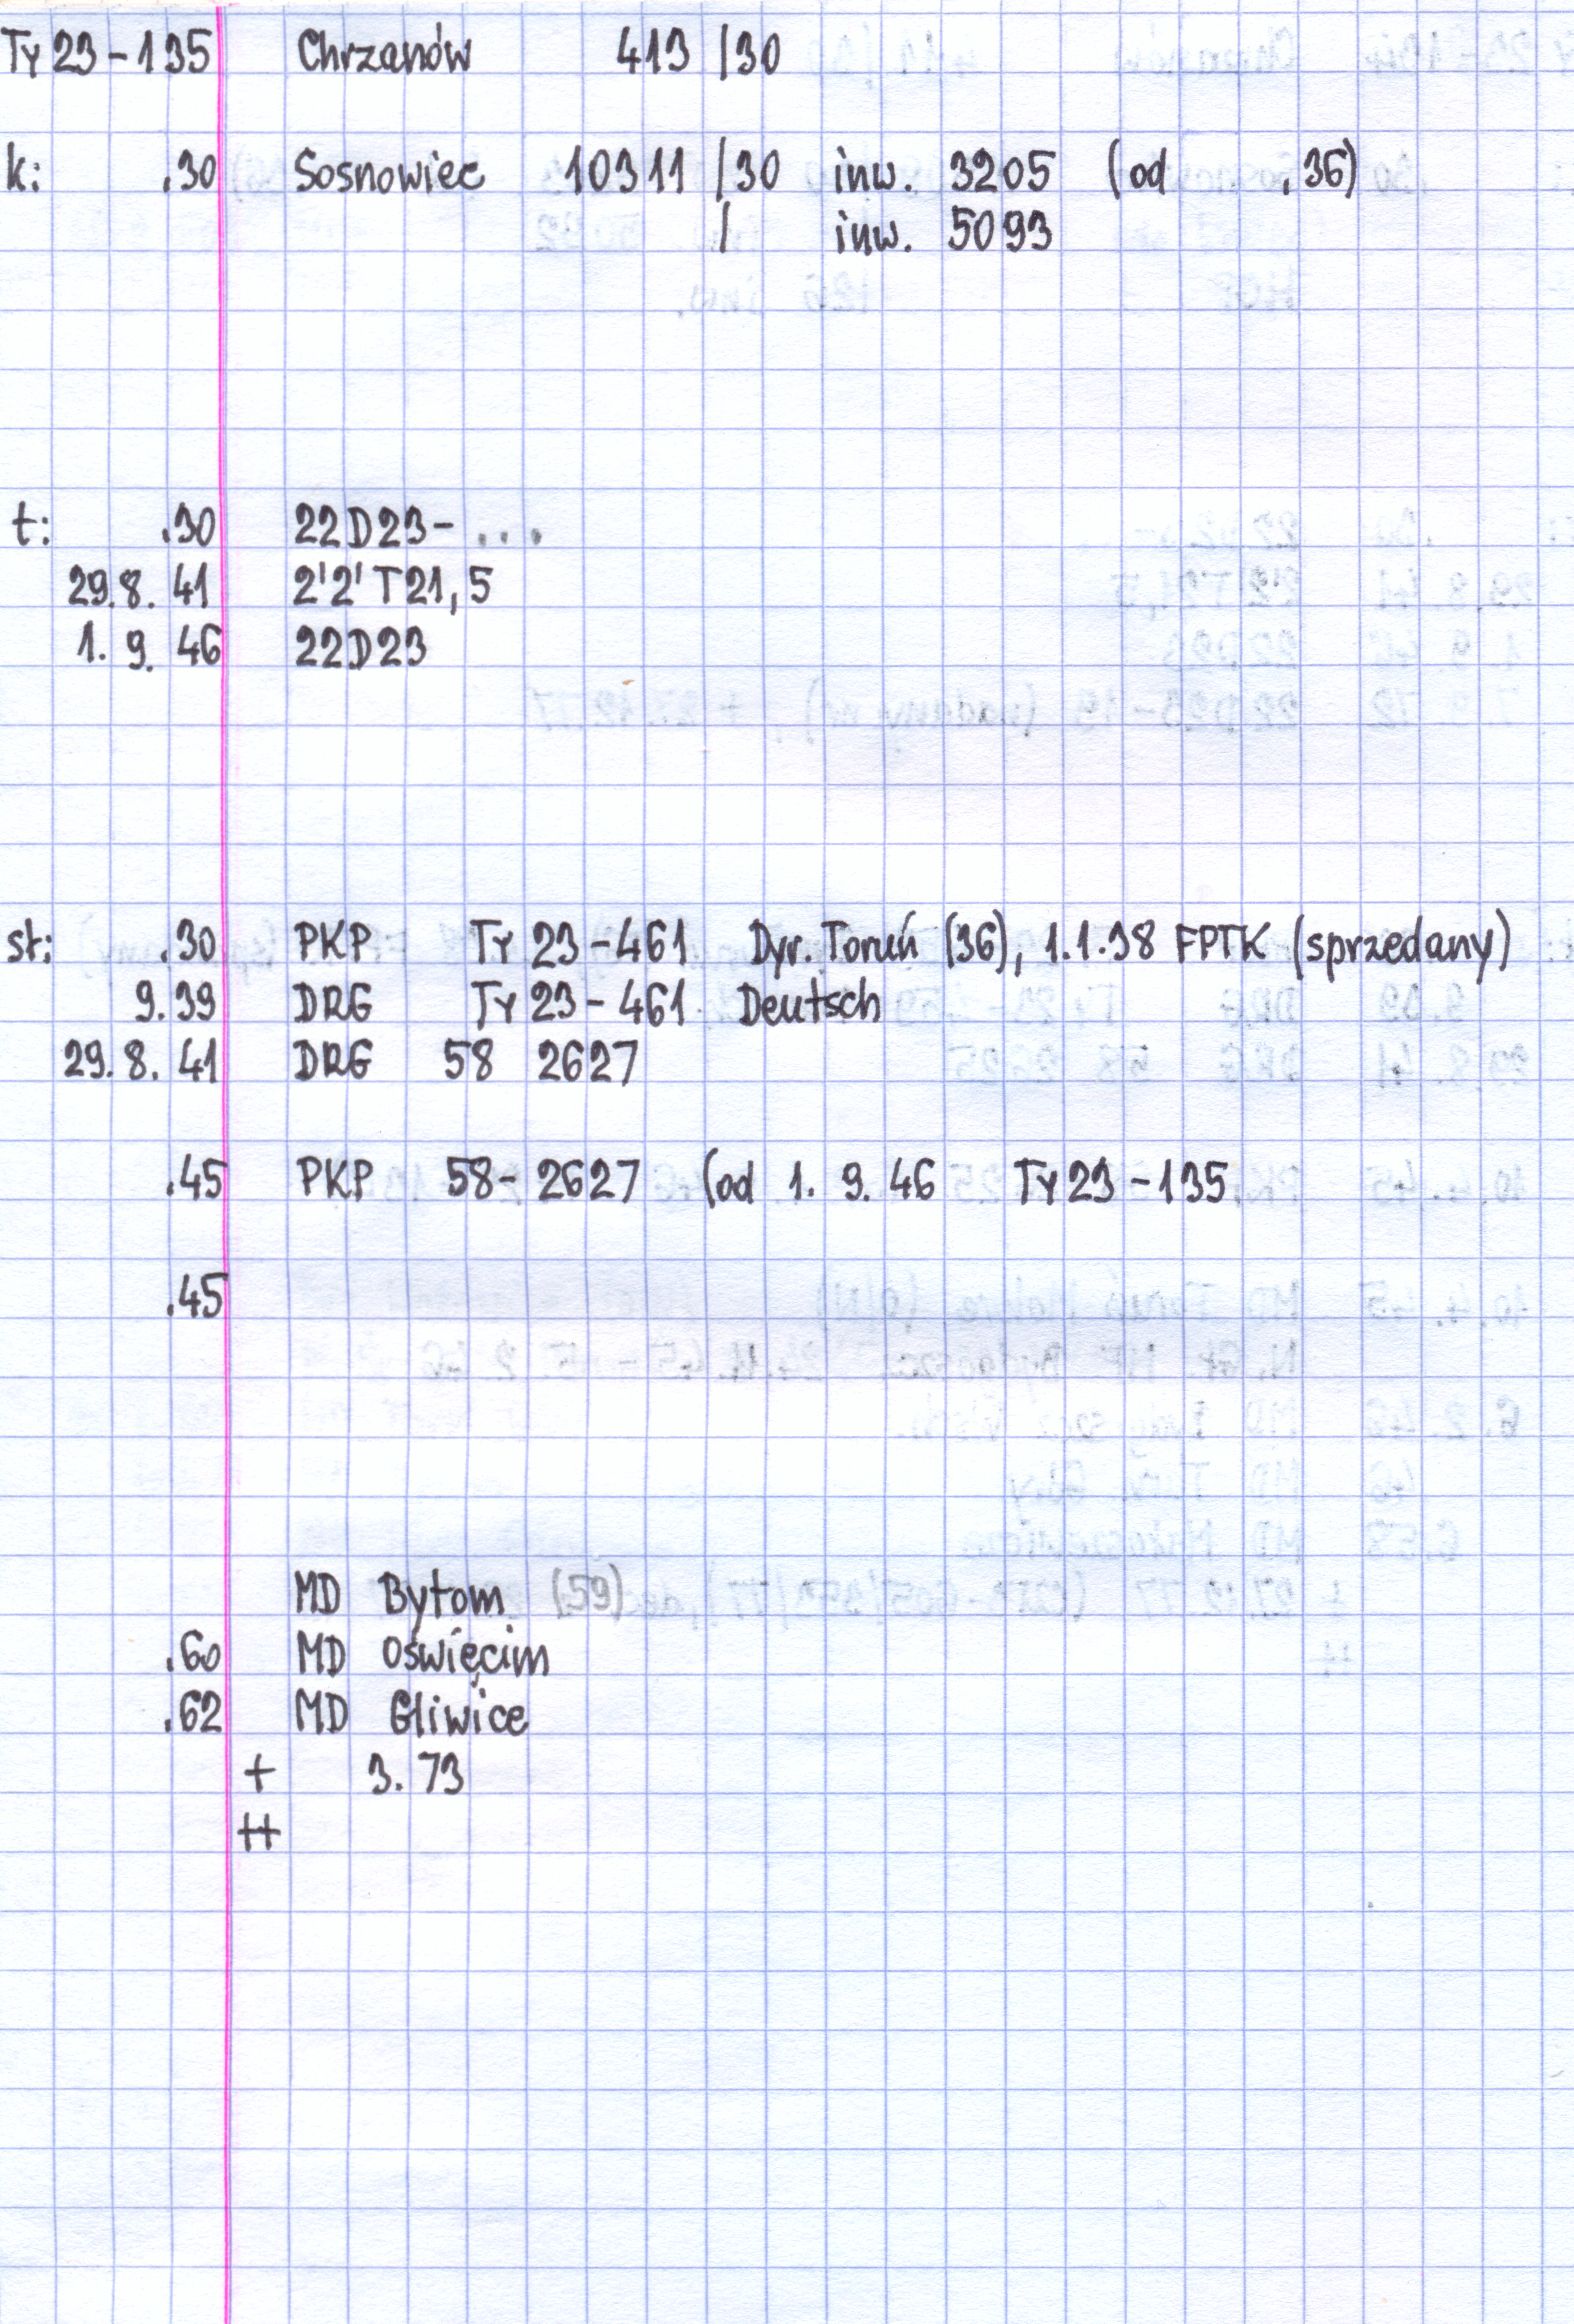 Ty 23-135 Chrzanów 413 /30
k: .30 Sosnowiec 10311 /30 inw. 3205 (od .36)
/ inw. 5093
t: .30 22D23- ...
29.8.41 2'2'T21,5
1.9.46 22D23
st: .30 PKP Ty 23-461 Dyr. Toruń (36), 1.1.38 FPTK (sprzedany)
9.39 DRG Ty 23-461 Deutsch
29.8.41 DRG 58 2627
.45 PKP 58-2627 (od 1.9.46 Ty 23-135
.45
MD Bytom (59)
.60 MD Oświęcim
.62 MD Gliwice
+ 3.73
++